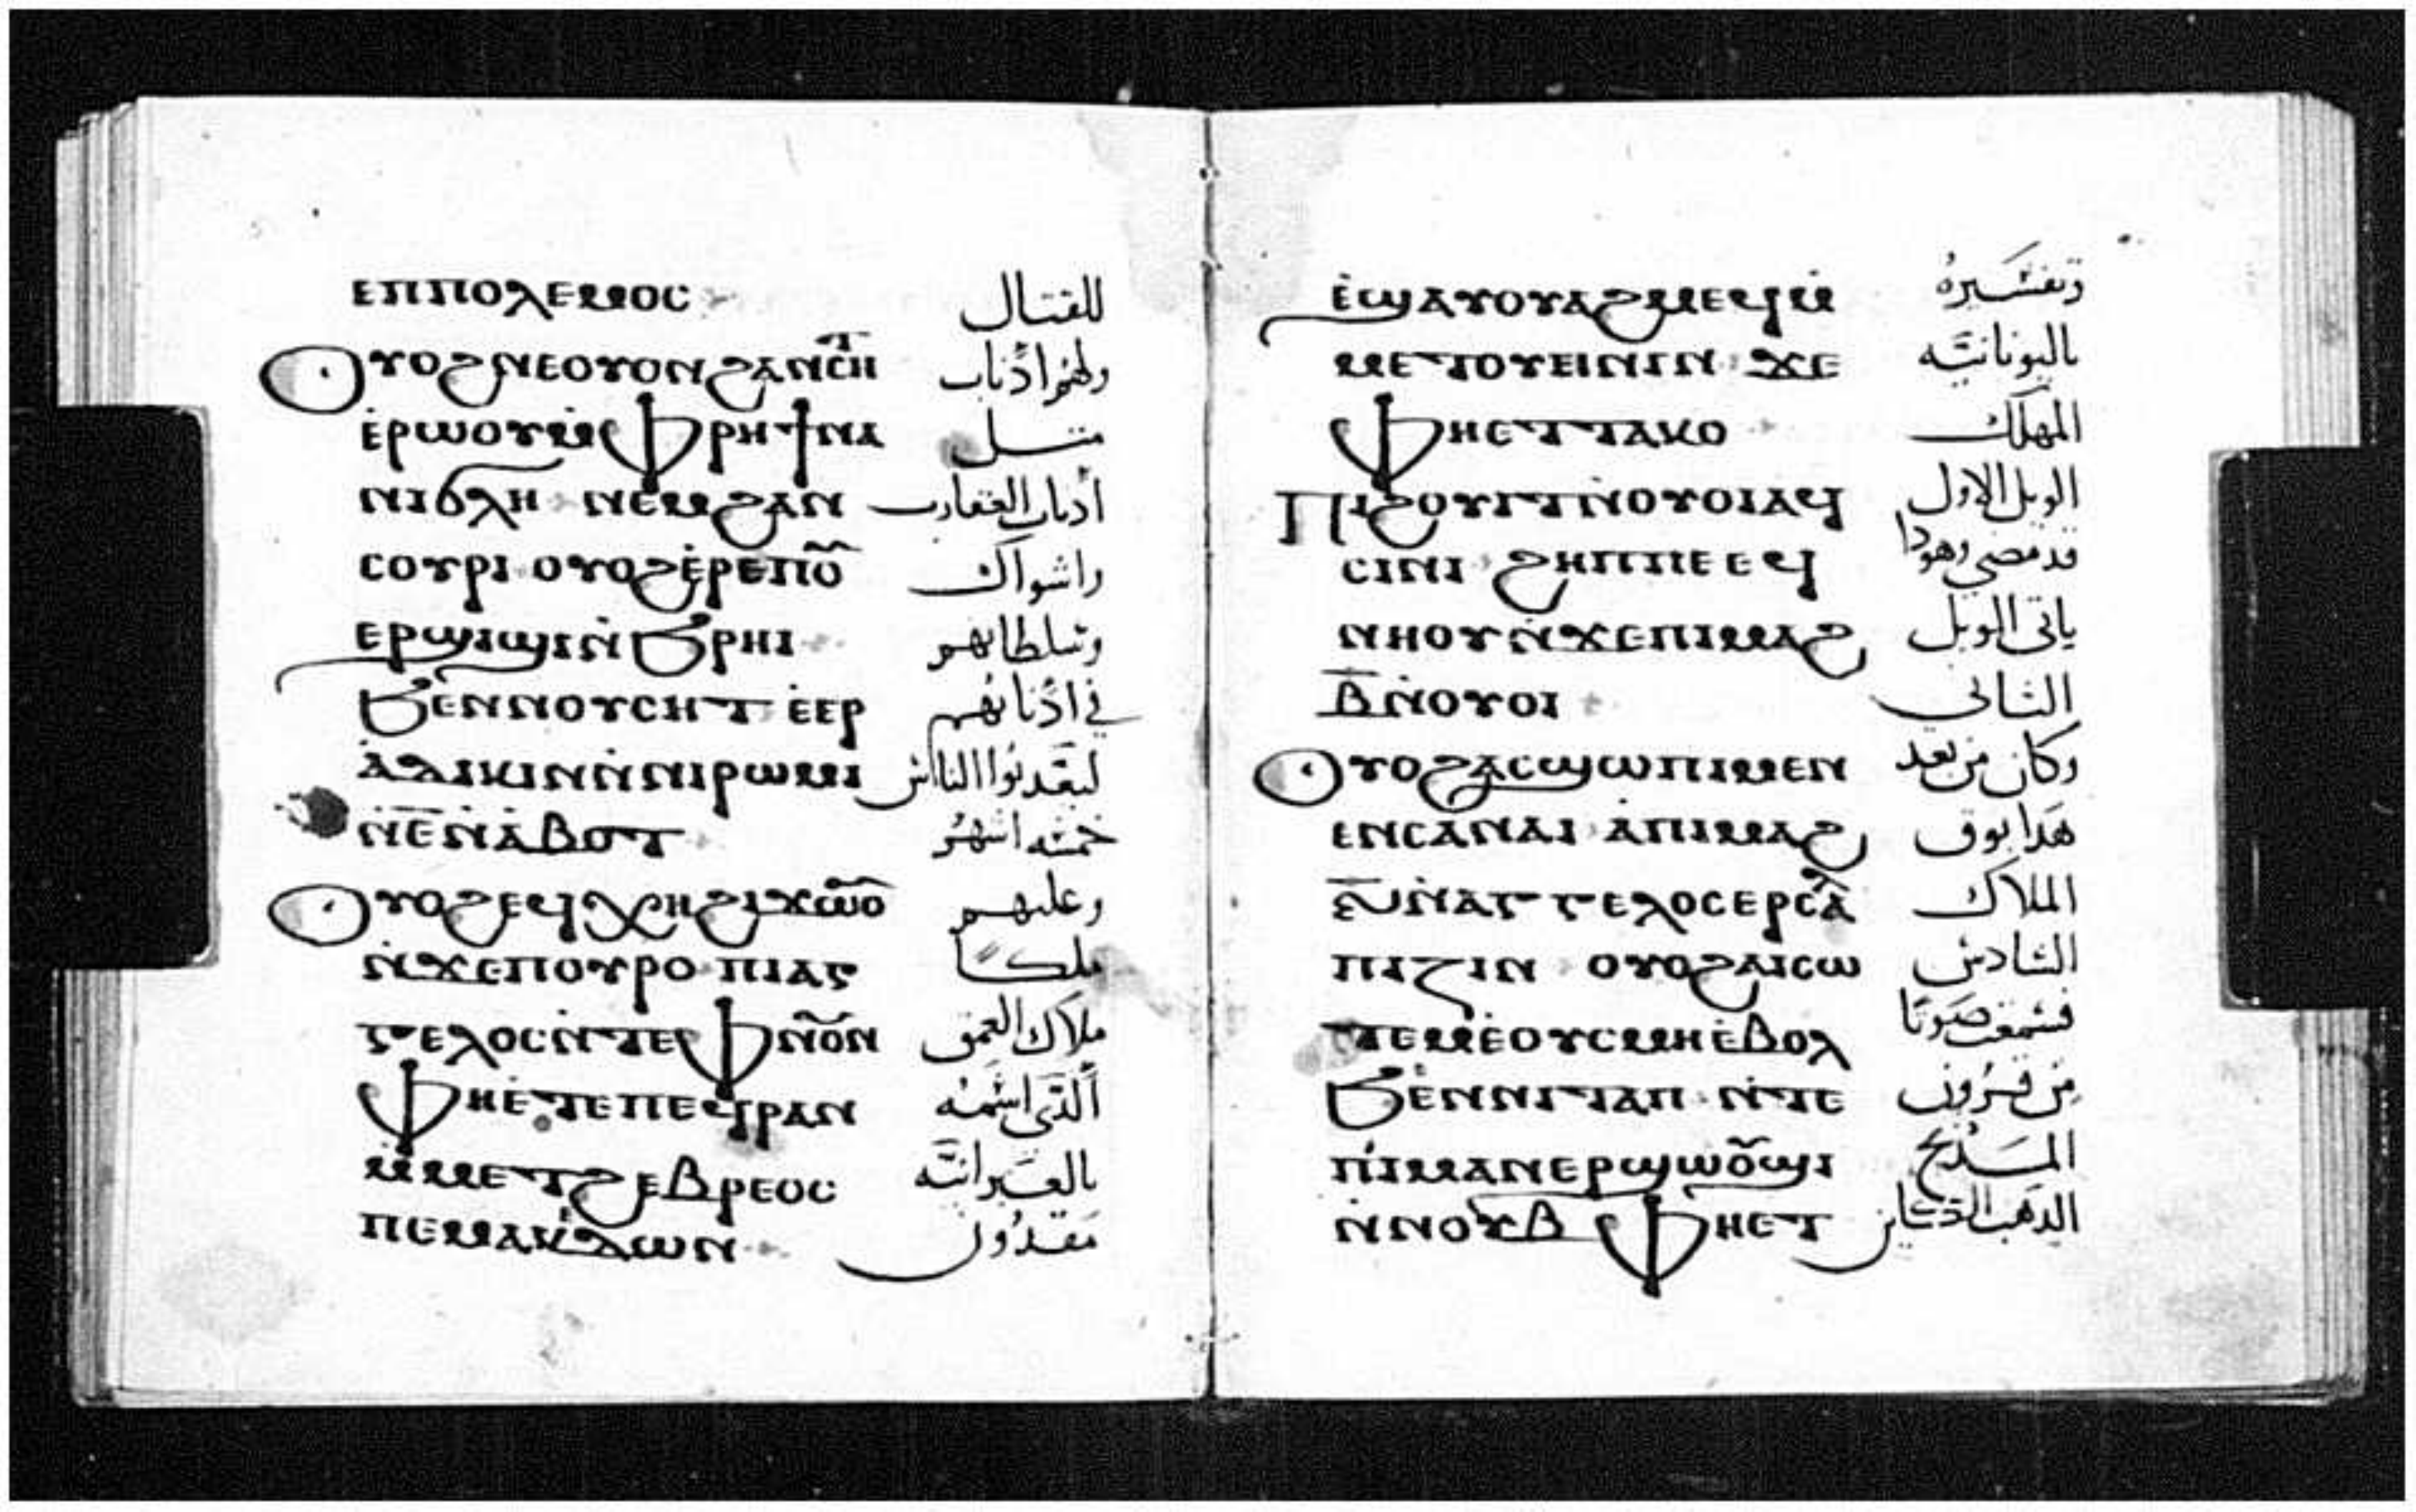 ⲉⲡⲡⲟⲗⲉⲙⲟⲥ للقتال
ⲟⲩⲟϩ ⲛⲉⲟⲩⲟⲛ ϩⲁⲛⲥⲏⲧ ولهم اذناب
ⲉ̀ⲣⲱⲟⲩ ⲙ̀ⲫⲣⲏϯ ⲛⲁ متل
ⲛⲓϭⲗⲏ ⲛⲉⲙ ϩⲁⲛ أدناب العقارب
ⲥⲟⲩⲣⲓ ⲟⲩⲟϩ ⲉ̀ⲣⲉⲡⲟ̅ⲩ̅ واشواك
ⲉⲣϣⲓϣⲓ ⲛ̀ϧⲣⲏⲓ وسلطانهم
ϧⲉⲛ ⲛⲟⲩⲥⲏⲧ ⲉ̀ⲉⲣ في اذنابهم
ⲁ̀ⲇⲓⲕⲓⲛ ⲛ̀ⲛⲓⲣⲱⲙⲓ الناس
ⲛ̀ⲉ̅ ⲛ̀ⲁ̀ⲃⲟⲧ خمسه اشهر
ⲟⲩⲟϩ ⲉϥⲭⲏ ϩⲓϫⲱⲟ̅ⲩ̅ وعليهم
ⲛ̀ϫⲉⲡⲟⲩⲣⲟ ⲡⲓⲁⲅ ملكًا
ⲅⲉⲗⲟⲥ ⲛ̀ⲧⲉ ⲫⲛⲟ̅ⲩ̅ⲛ ملاك العمق
ⲫⲏⲉ̀ⲧⲉ ⲡⲉϥⲣⲁⲛ ألذى اسمه
ⲙ̀ⲙⲉⲧϩⲉⲃⲣⲉⲟⲥ بالعبرانيّه
ⲡⲉ ⲙⲁⲕⲇⲱⲛ مقدون
ⲉ̀ϣⲁⲩⲟⲩⲁϩⲙⲉϥ ⲙ̀ وتفسيرهُ
ⲙⲉⲧⲟⲩⲉⲓⲛⲓⲛ ϫⲉ باليونانيّه
ⲫⲏⲉⲧⲧⲁⲕⲟ المهلك
ⲡⲓϩⲟⲩⲓⲧ ⲛ̀ⲟⲩⲟⲓ ⲁϥ الويل الاول
ⲥⲓⲛⲓ ϩⲏⲡⲡⲉ ⲉϥ قد مضى وهودا
ⲛⲏⲟⲩ ⲛ̀ϫⲉⲡⲓⲙⲁϩ ياتى الويل
ⲃ̅ ⲛ̀ⲟⲩⲟⲓ الثانى
ⲟⲩⲟϩ ⲁⲥϣⲱⲡⲓ ⲙⲉⲛ وكان من بعد
ⲉⲛⲥⲁ ⲛⲁⲓ ⲁ̀ⲡⲓⲙⲁϩ هذا بوق
ⲋ̅ ⲛ̀ⲁⲅⲅⲉⲗⲟⲥ ⲉⲣⲥⲁⲗ الملاك
ⲡⲓⲍⲓⲛ ⲟⲩⲟϩ ⲁⲓⲥⲱ السادس
ⲧⲉⲙ ⲉ̀ⲟⲩⲥⲙⲏ ⲉ̀ⲃⲟⲗ فسمعت صوتا
ϧⲉⲛ ⲛⲓⲧⲁⲡ ⲛ̀ⲧⲉ من قرون
ⲡⲓⲙⲁⲛⲉⲣϣⲱⲟ̅ⲩ̅ϣⲓ المدبح
ⲛ̀ⲛⲟⲩⲃ ⲫⲏⲉⲧ الذهب